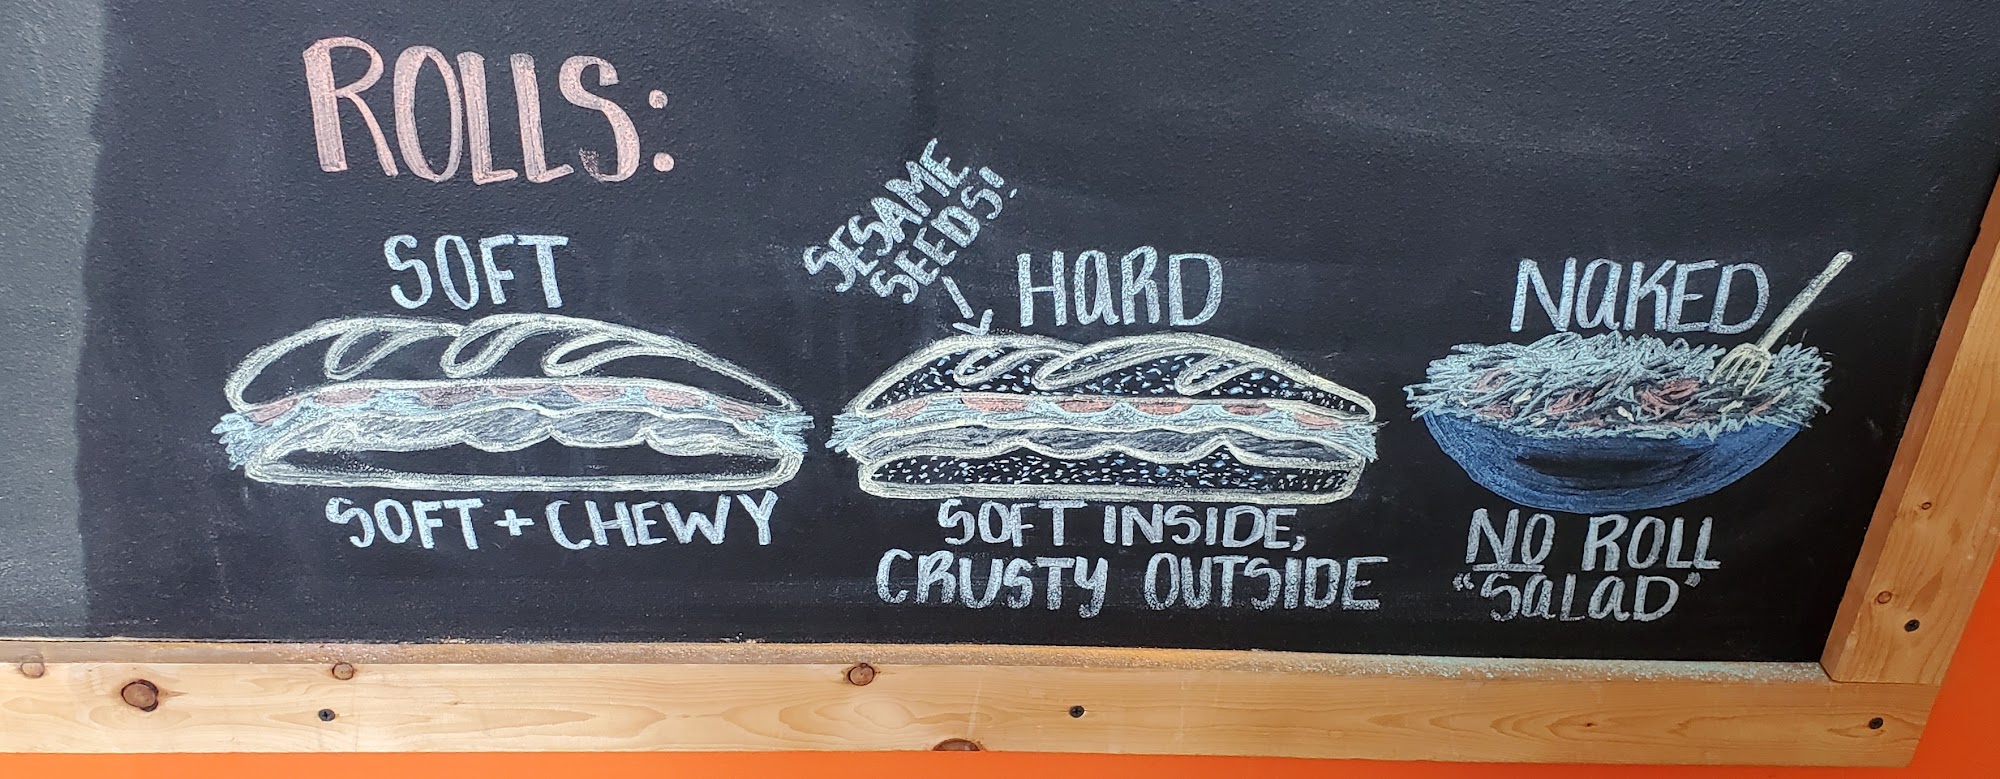 ROLLS:
SOFT
SOFT + CHEWY
SESAME
SEEDS!
HARD
SOFT INSIDE,
CRUSTY OUTSIDE
NAKED
NO ROLL
"SALAD"